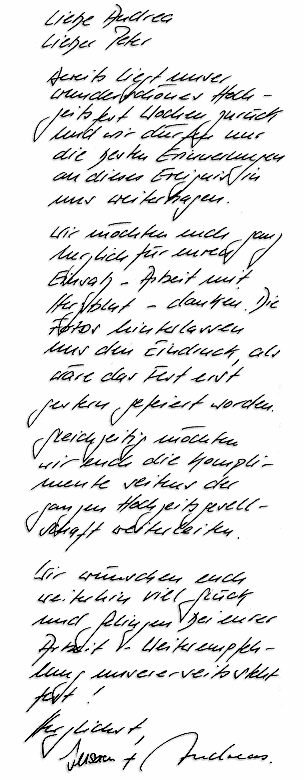 Liebe Andrea
Lieber Peter
Bereits liegt unser
wunderschönes Hoch-
zeitsfest Wochen zurück
und wir dürfen nur
die besten Erinnerungen
an dieses Ereignis in
uns weitertragen.
Wir möchten euch ganz
herzlich für euren
Einsatz - Arbeit mit
Herzblut - danken. Die
Fotos hinterlassen
uns den Eindruck, als
wäre das Fest erst
gestern gefeiert worden.
Gleichzeitig möchten
wir euch die Kompli-
mente seitens der
ganzen Hochzeitsgesell-
schaft weiterleiten.
Wir wünschen euch
weiterhin viel Glück
und Gelingen bei eurer
Arbeit - Weiterempfeh-
lung unsererseits steht
fest!
Herzlichst,
+ Andreas.